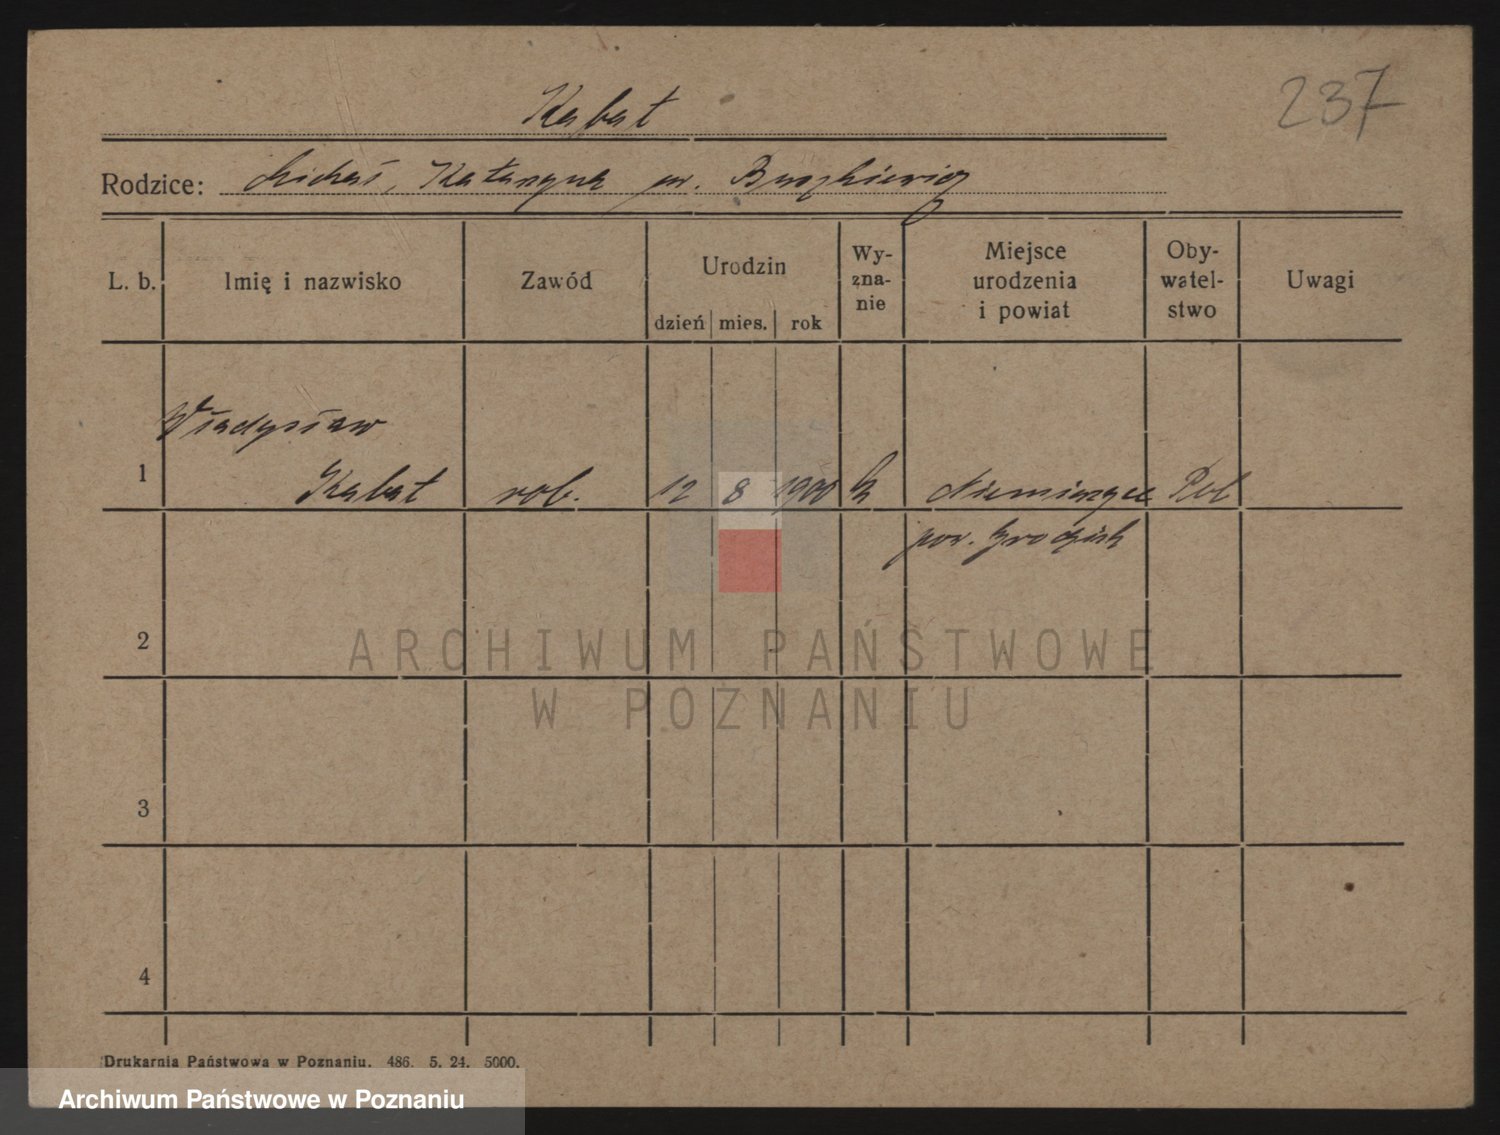 237
Kabat
Rodzice: Michał, Katarzyna ur. Buszkiewicz
L. b.
Imię i nazwisko
Zawód
Urodzin
dzień mies. rok
Wy-
zna-
nie
Miejsce
urodzenia
i powiat
Oby-
watel-
stwo
Uwagi
Władysław
1 Kabat rob. 12 8 1900 k Niemierzyce Pol
pow. Grodzisk
2
ARCHIWUM PAŃSTWOWE
W POZNANIU
3
4
Drukarnia Państwowa w Poznaniu. 486. 5. 24. 5000.
Archiwum Państwowe w Poznaniu